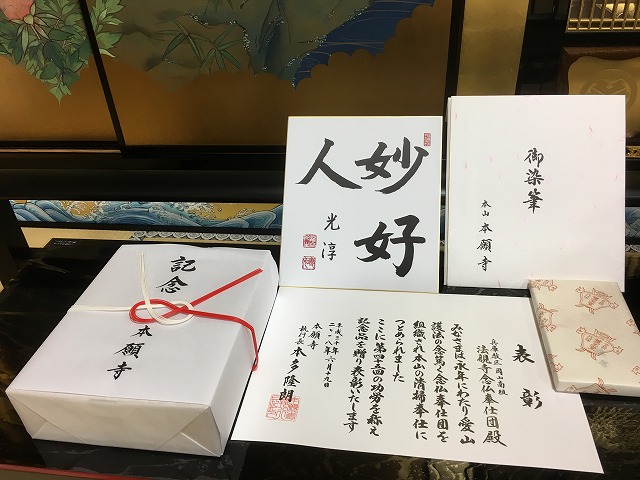 妙好
人
光淳
御染筆
本山 本願寺
記念
本願寺
表彰
岡山南組
念仏奉仕団殿
みなさまは永年にわたり愛山
護法の念篤く念仏奉仕団を
組織され本山の清掃奉仕に
つとめられました
ここに第 回の功労を称え
記念品を贈り表彰いたします
平成三十年
二〇一八年六月十九日
本願寺
執行長 本多隆朗